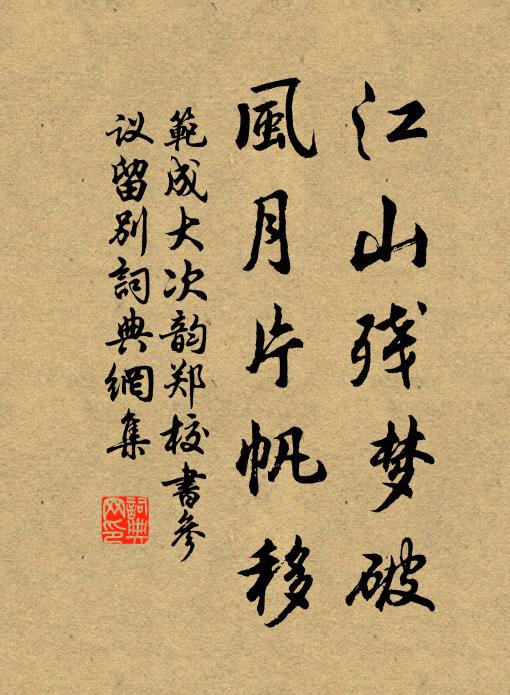 江山残梦破
風月片帆移
範成大次韵郑校書參
议留别詞典網集
詞典
网印